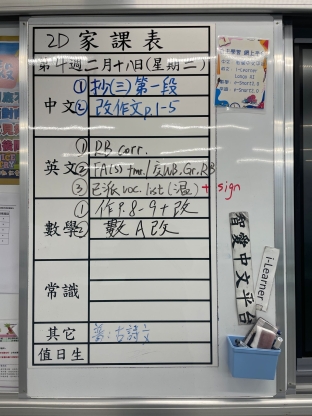 2D 家課表
第4週二月十八日(星期二)
中文 ①抄(三)第一段
②改作文p.1-5
英文 ① RB corr.
③已派voc. list (溫) + sign
數學 ① 作P.8-9+改
② 數A改
常識
其它
古詩文
值日生
智愛中文平台
i-Learner